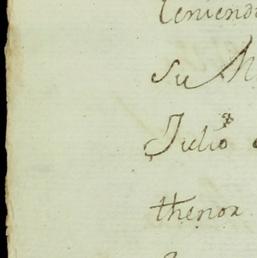 teniendo
su M
Julio
thenor